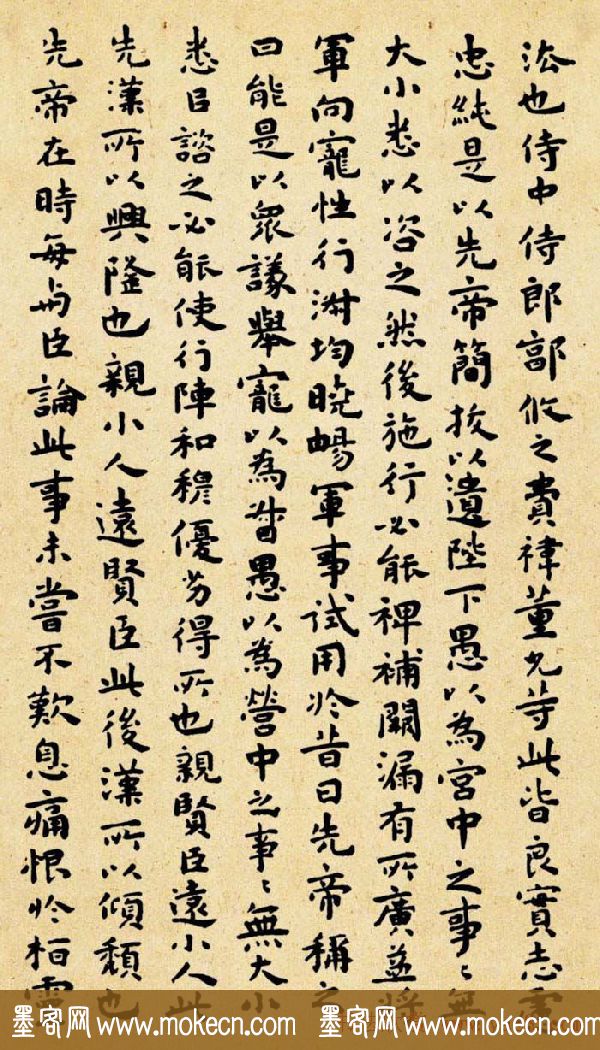 法也侍中侍郎郭攸之費禕董允等此皆良實志慮
忠純是以先帝簡拔以遺陛下愚以為宮中之事〻無
大小悉以咨之然後施行必能裨補闕漏有所廣益將
軍向寵性行淑均曉暢軍事試用於昔日先帝稱之
曰能是以眾議舉寵以為督愚以為營中之事〻無大小
悉以諮之必能使行陣和穆優劣得所也親賢臣遠小人此
先漢所以興隆也親小人遠賢臣此後漢所以傾頹也
先帝在時每与臣論此事未嘗不歎息痛恨於桓靈
墨客网 www.mokecn.com 墨客网 www.mokecn.com